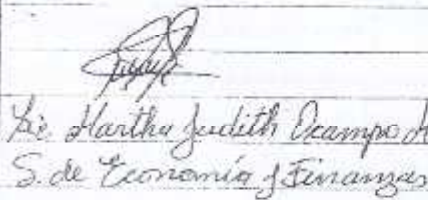 Lic. Martha Judith Ocampo
S. de Economía y Finanzas